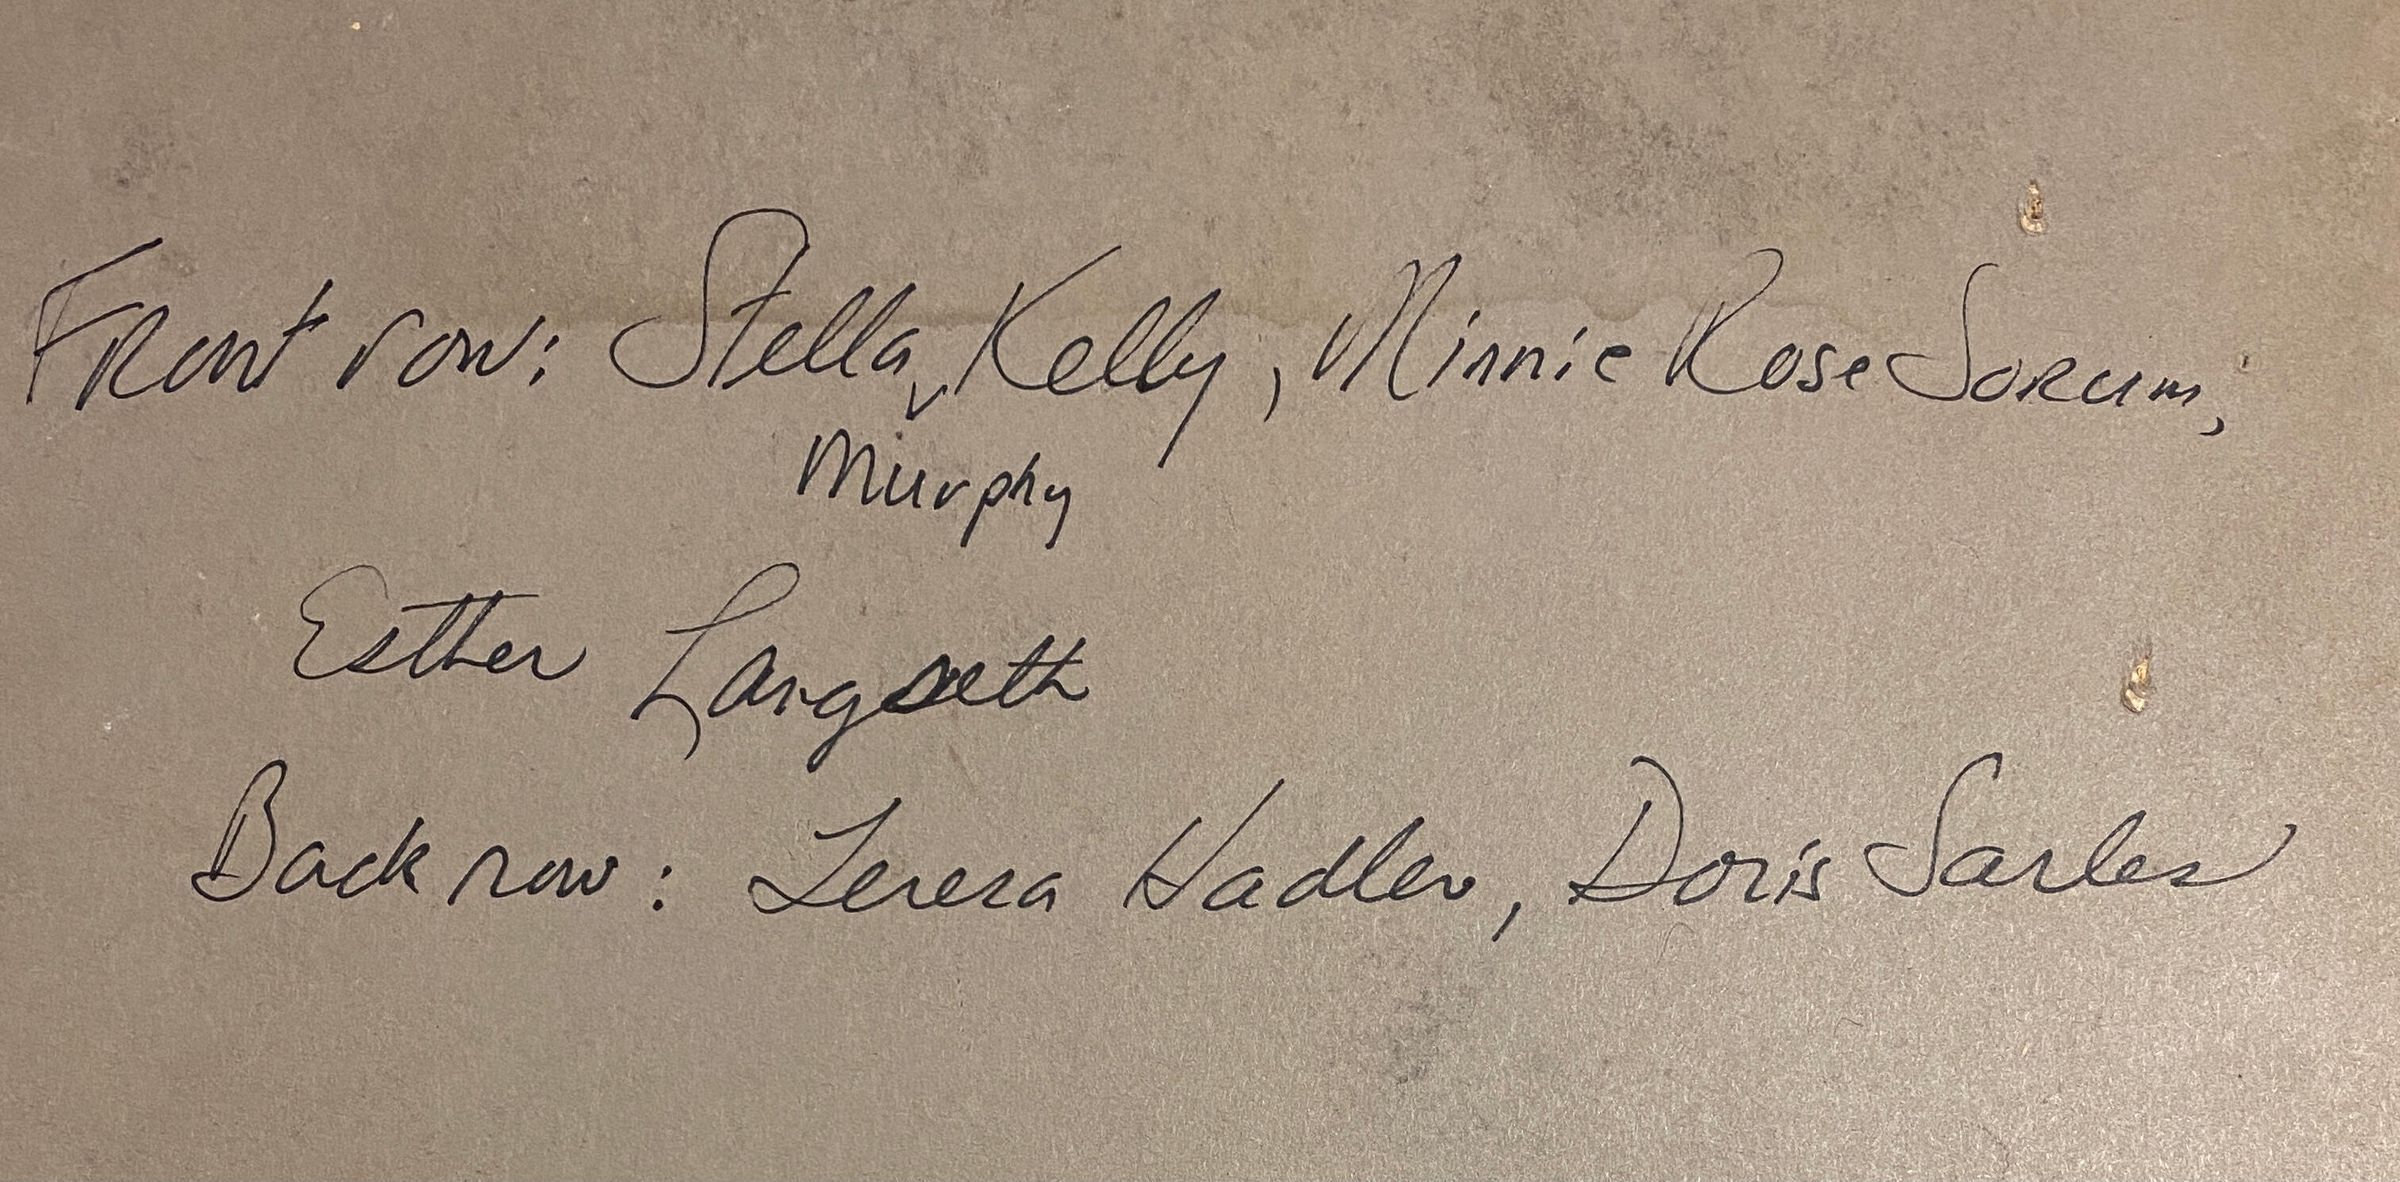 Front row: Stella Kelly, Minnie Rose Sorum,
Murphy
Esther Langseth
Back row: Teresa Hadler, Doris Sarles